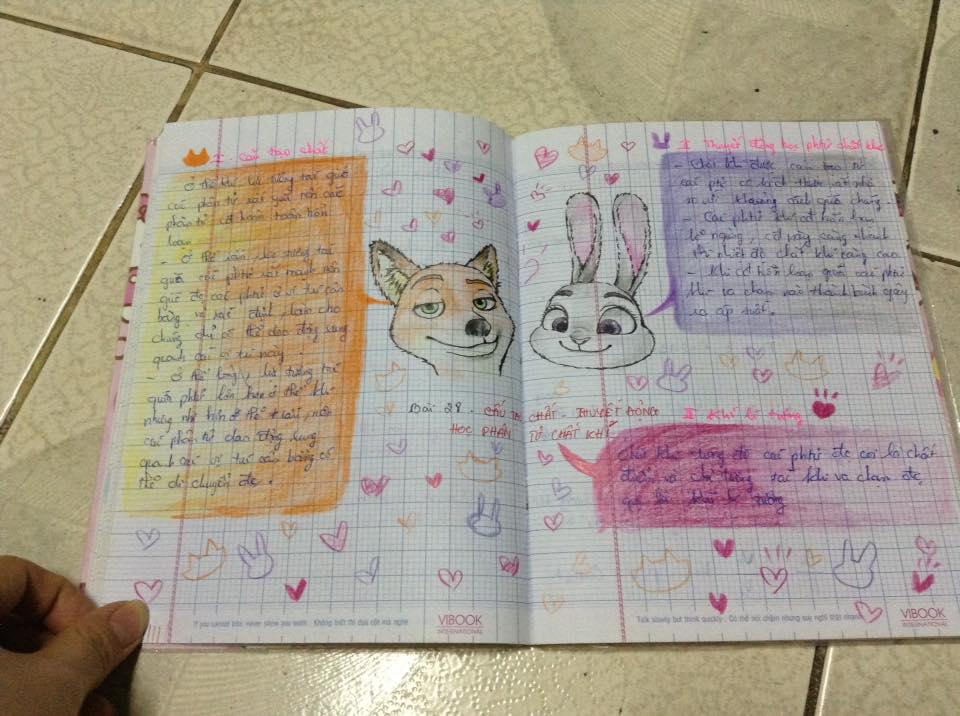 I. Cấu tạo chất
Ở thể khí lực tương tác giữa
các phân tử rất yếu nên các
phân tử cđ hoàn toàn hỗn
loạn
- Ở thể rắn, lực tương tác
giữa các ptử rất mạnh nên
giữ đc các ptử ở vị trí cân
bằng và xác định, làm cho
chúng chỉ có thể dao động xung
quanh các vị trí này.
- Ở thể lỏng, lực tương tác
giữa ptử lớn hơn ở thể khí
nhưng nhỏ hơn ở thể rắn, nên
các phân tử dao động xung
quanh các vị trí cân bằng có
thể di chuyển đc.
Bài 28. CẤU TẠO CHẤT. THUYẾT ĐỘNG
HỌC PHÂN TỬ CHẤT KHÍ
II Thuyết động học phtử chất khí
- Chất khí được cấu tạo từ
các ptử có kích thước rất nhỏ
so với khoảng cách giữa chúng.
- Các phtử khí cđ hỗn loạn
ko ngừng, cđ này càng nhanh
thì nhiệt độ chất khí càng cao
- Khi cđ hỗn loạn giữa các phtử
khí va chạm vào thành bình gây
ra áp suất.
III Khí lí tưởng
Chất khí trong đó các phtử đc coi là chất
điểm và chỉ tương tác khi va chạm đc
gọi là khí lí tưởng
If you cannot bite, never show you teeth Không biết thì dựa cột mà nghe
VIBOOK
INTERNATIONAL
Talk slowly but think quickly. Có thể nói chậm nhưng suy nghĩ thật nhanh
VIBOOK
INTERNATIONAL